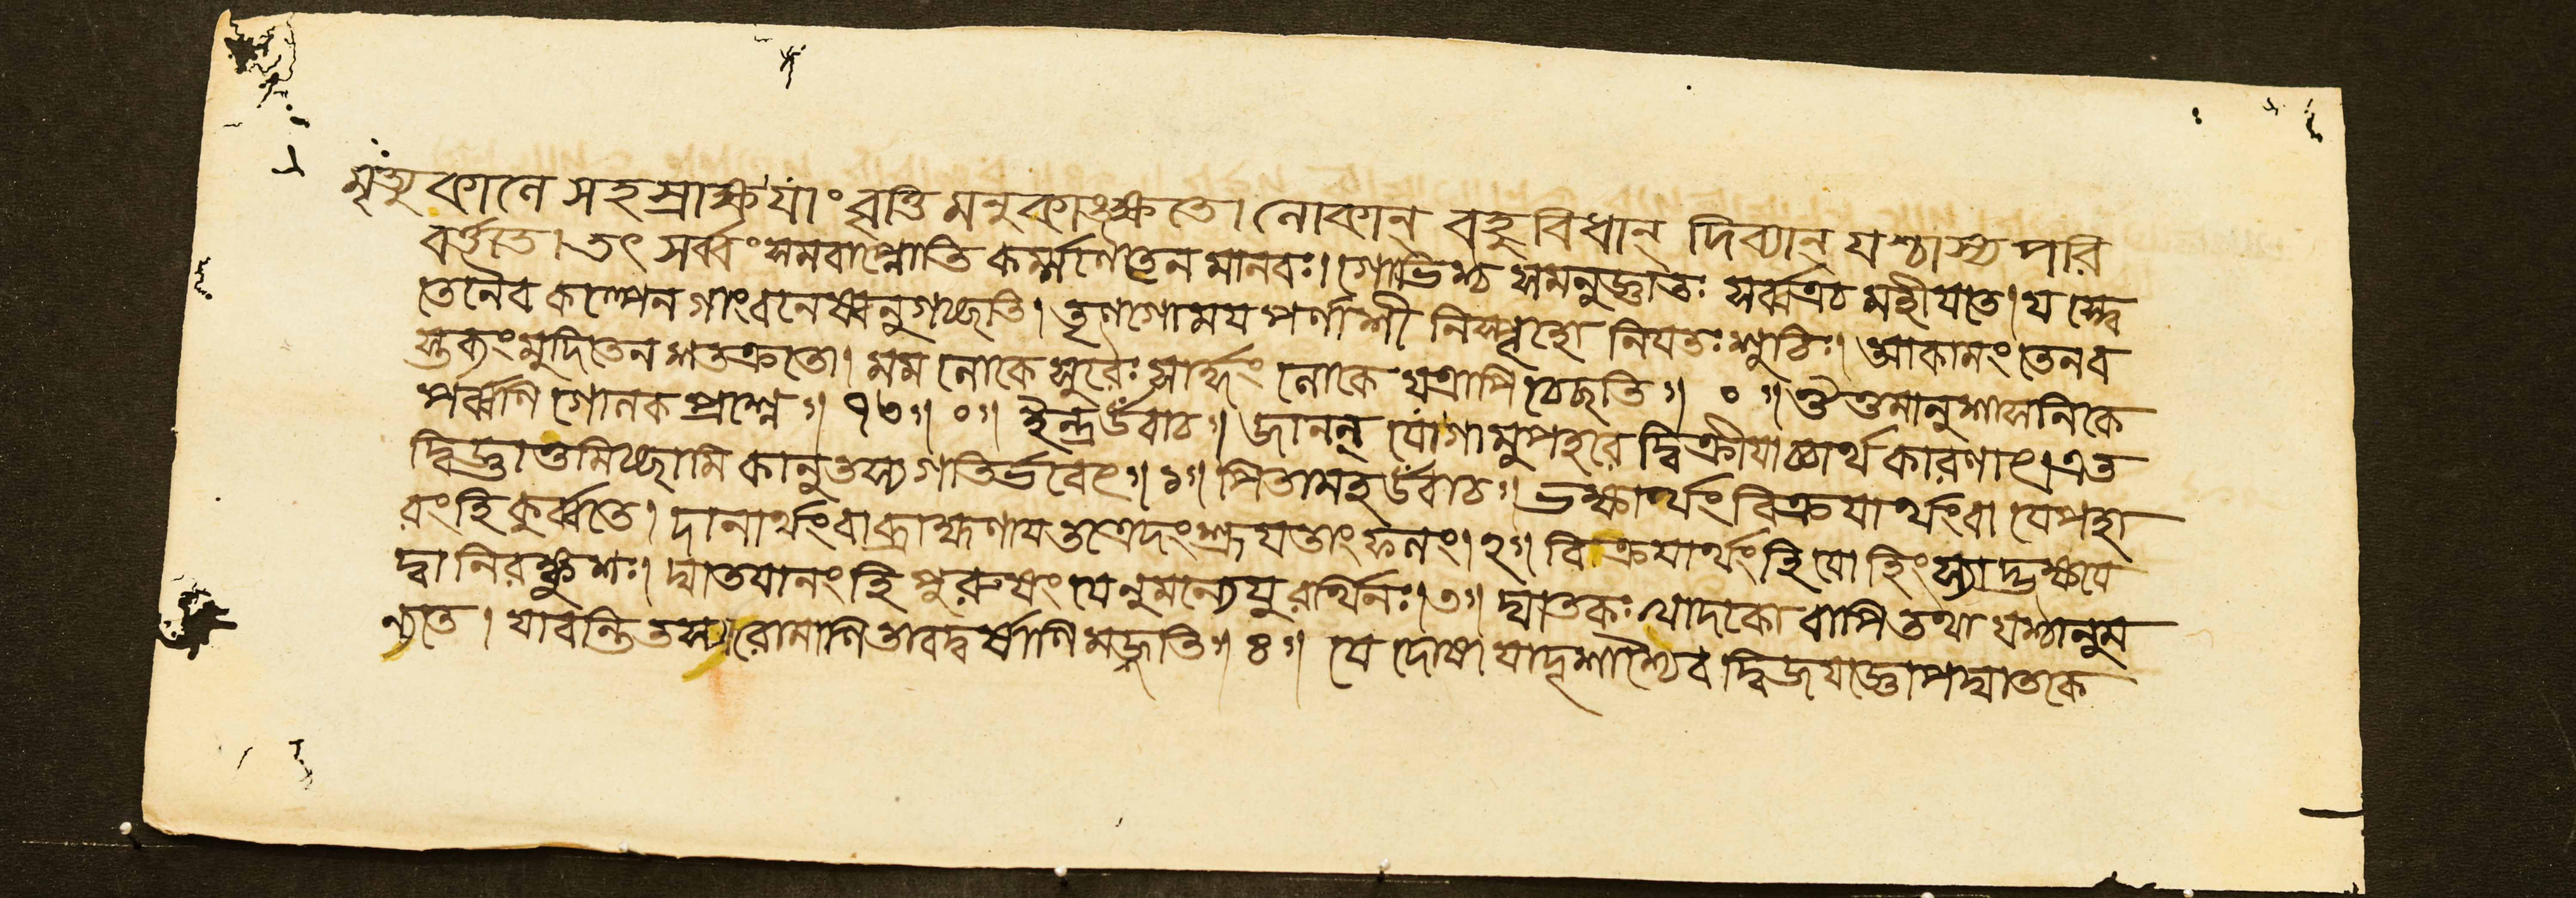 মৃত্যুকালে সহস্রাক্ষ যাং বৃত্তিমনুকাঙ্ক্ষতে। লোকান্ বহুবিধান্ দিব্যান্ যশ্চাস্য পরি
বর্ত্ততে। তৎ সর্ব্বং সমবাপ্নোতি কর্ম্মণৈতেন মানবঃ। গোভিশ্চ সমনুজ্ঞাতঃ সর্ব্বত্রচ মহীযতে। যস্ত্বে
তেনৈব কল্পেন গাং বনেষ্বনুগচ্ছতি। তৃণগোময পর্ণাশী নিস্পৃহো নিযতঃ শুচিঃ। অকামং তেন ব
স্তব্যং মুদিতেন শতক্রতো। মম লোকে সুরৈঃ সার্দ্ধং লোকে যত্রাপি চেচ্ছতি॥ ০ ॥ পর্ব্বণি
পর্ব্বণি গোলক প্রশ্নে॥ ৭৩॥ ০॥ ইন্দ্র উবাচ॥ জানন্ যো গামুপহরেদ্বিক্রীযাচ্চার্থ কারণাৎ। এত
দ্বিজ্ঞাতুমিচ্ছামি কানু তস্য গতির্ভবেৎ॥ ১॥ পিতামহ উবাচ॥ ভক্ষার্থং বিক্রযার্থং বা যেপহা
রং হি কুর্ব্বতে। দানার্থং বা ব্রাহ্মণায তত্রেদং শ্রূযতাং ফলং। ২॥ বিক্রযার্থং হি যো হিংস্যাদ্ভক্ষযে
দ্বা নিরঙ্কুশঃ। ঘাতযানং হি পুরুষং যেনুমন্যেযুরর্থিনঃ। ৩॥ ঘাতকঃ খাদকো বাপি তথা যশ্চানুম
ন্যতে। যাবন্তি তস্যা রোমাণি তাবদ্বর্ষাণি মজ্জতি॥ ৪॥ যে দোষা যাদৃশাশ্চৈব দ্বিজযজ্ঞোপঘাতকে